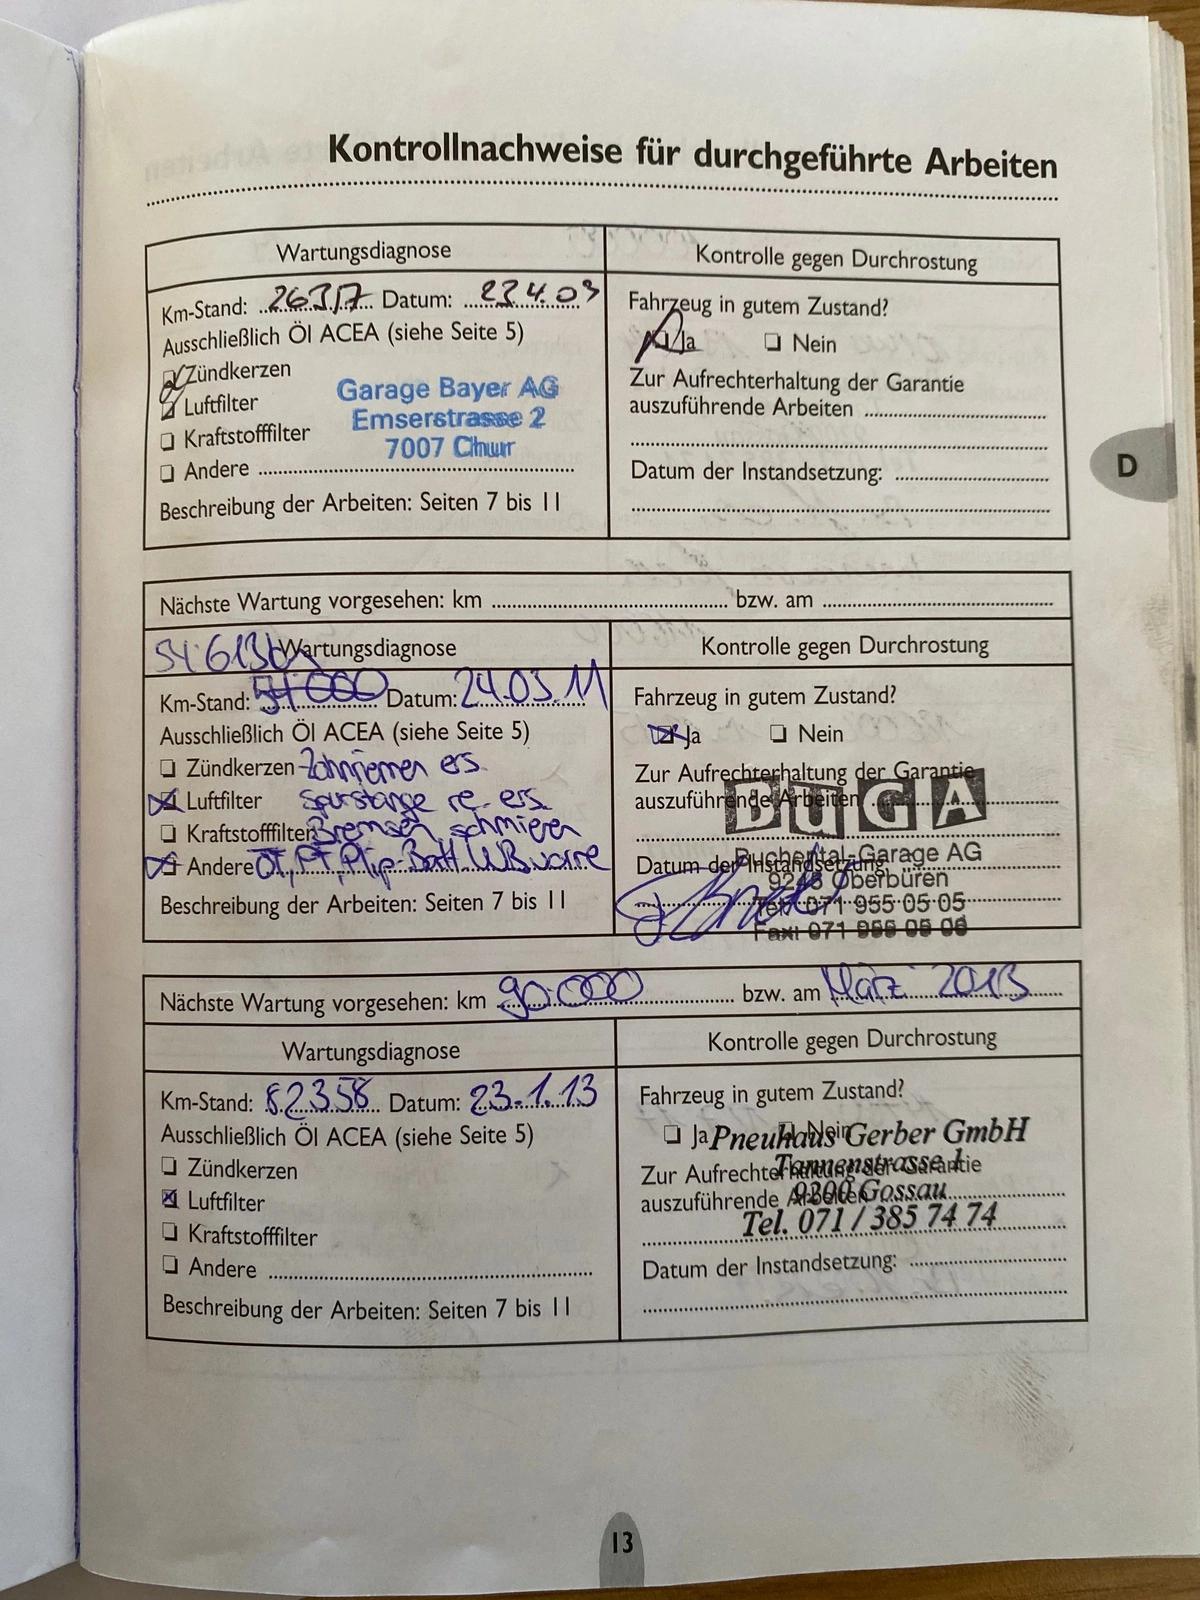 Kontrollnachweise für durchgeführte Arbeiten
Wartungsdiagnose
Km-Stand: 26317 Datum: 23.4.09
Ausschließlich Öl ACEA (siehe Seite 5)
Zündkerzen
Luftfilter
Kraftstofffilter
Andere
Beschreibung der Arbeiten: Seiten 7 bis 11
Garage Bayer AG
Emserstrasse 2
7007 Chur
Kontrolle gegen Durchrostung
Fahrzeug in gutem Zustand?
Ja Nein
Zur Aufrechterhaltung der Garantie
auszuführende Arbeiten
Datum der Instandsetzung:
D
Nächste Wartung vorgesehen: km bzw. am
54'613 Wartungsdiagnose
Km-Stand: 54'000 Datum: 24.03.11
Ausschließlich Öl ACEA (siehe Seite 5)
Zündkerzen Zahnriemen ers.
Luftfilter Spurstange re. ers.
Kraftstofffilter Bremsen schmieren
Andere Batt.
Beschreibung der Arbeiten: Seiten 7 bis 11
Kontrolle gegen Durchrostung
Fahrzeug in gutem Zustand?
Ja Nein
Zur Aufrechterhaltung der Garantie
auszuführende Arbeiten
Datum der Instandsetzung:
BUGA
Buchental-Garage AG
9245 Oberbüren
Tel. 071 955 05 05
Fax: 071 955 05 06
Nächste Wartung vorgesehen: km 90.000 bzw. am März 2013
Wartungsdiagnose
Km-Stand: 82358 Datum: 23.1.13
Ausschließlich Öl ACEA (siehe Seite 5)
Zündkerzen
Luftfilter
Kraftstofffilter
Andere
Beschreibung der Arbeiten: Seiten 7 bis 11
Kontrolle gegen Durchrostung
Fahrzeug in gutem Zustand?
Ja Nein
Zur Aufrechterhaltung der Garantie
auszuführende Arbeiten
Datum der Instandsetzung:
Pneuhaus Gerber GmbH
Tannenstrasse 1
9200 Gossau
Tel. 071 / 385 74 74
13